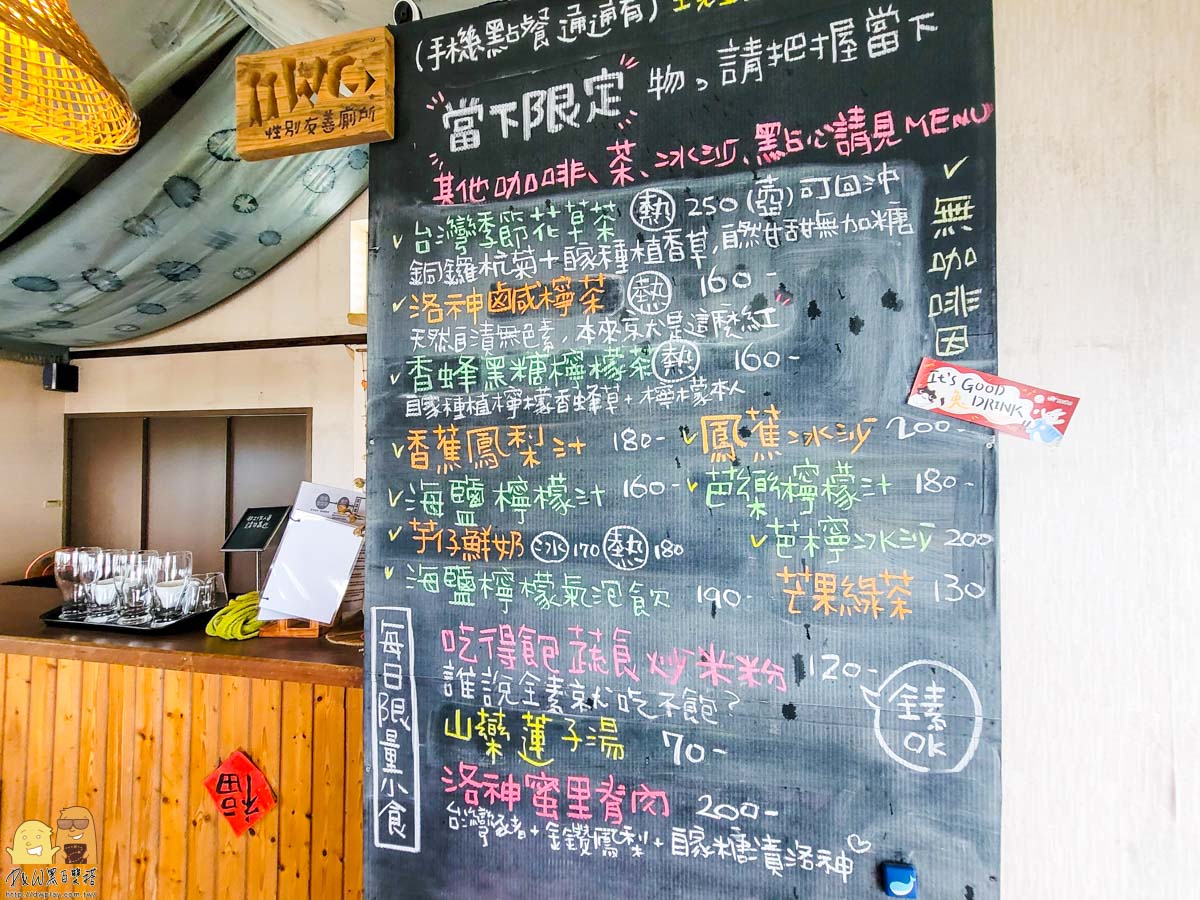 (手機點餐 通通有)
當下限定 物、請把握當下
其他咖啡、茶、冰沙、點心請見MENU
✓無咖啡因
✓台灣季節花草茶 熱 250(壺)可回沖
銅鑼杭菊+自家種植香草,自然甘甜無加糖
✓洛神鹵咸檸茶 熱 160-
天然自漬無色素,本來就是這麼紅
✓香蜂黑糖檸檬茶 熱 160-
自家種植檸檬香蜂草+檸檬本人
✓香蕉鳳梨汁 180- ✓鳳蕉冰沙 200-
✓海鹽檸檬汁 160- ✓芭樂檸檬汁 180-
✓芋仔鮮奶 冰170 熱180 ✓芭檸冰沙 200
✓海鹽檸檬氣泡飲 190- 芒果綠茶 130
每日限量小食
吃得飽蔬食炒米粉 120-
誰說全素就吃不飽?
全素OK
山藥蓮子湯 70-
洛神蜜里脊肉 200-
+金鑽鳳梨+自家糖漬洛神
IT'S GOOD
DRINK
WC
性別友善廁所
福
http://dwplay.com.tw/